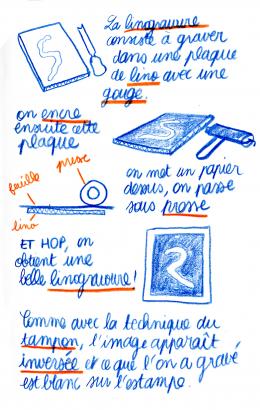 La linogravure
consiste à graver
dans une plaque
de lino avec une
gouge.
on encre
ensuite cette
plaque
presse
feuille
lino
on met un papier
dessus, on passe
sous presse
ET HOP, on
obtient une
belle linogravure!
Comme avec la technique du
tampon, l'image apparaît
inversée et ce que l'on a gravé
est blanc sur l'estampe.